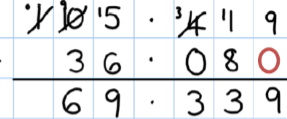 1 10 ¹5 . ³4 ¹1 9
3 6 . 0 8 0
6 9 . 3 3 9